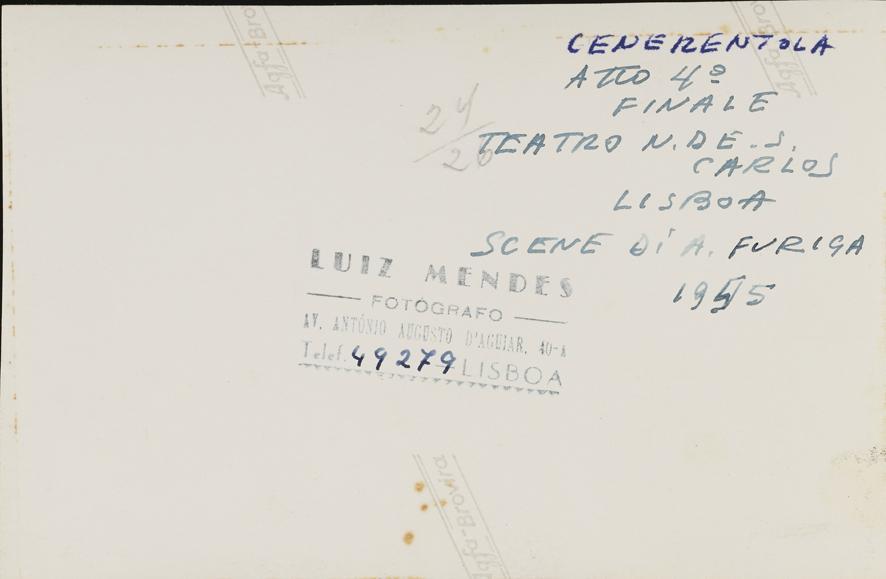 CENERENTOLA
ATTO 4º
FINALE
TEATRO N. DE. S.
CARLOS
LISBOA
SCENE DI A. FURIGA
1955
24/26
LUIZ MENDES
FOTÓGRAFO
AV. ANTÓNIO AUGUSTO D'AGUIAR, 40-A
Telef. 49279 LISBOA
Agfa-Brovira
Agfa-Brovira
Agfa-Brovira